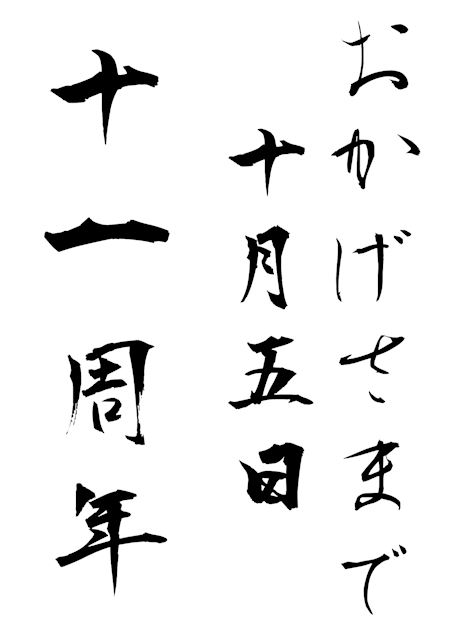 おかげさまで
十月五日
十一周年